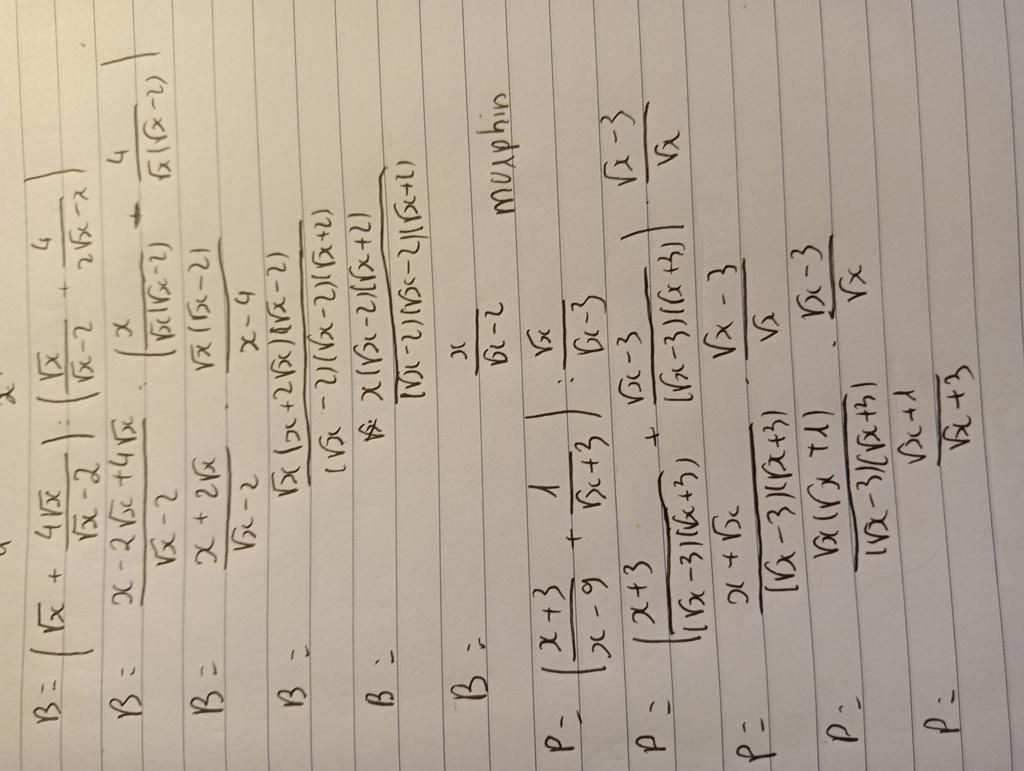 B = (√x + 4√x/(√x - 2)) : (√x/(√x - 2) + 4/(2√x - x))
B = (x - 2√x + 4√x)/(√x - 2) : (x/(√x(√x - 2)) - 4/(√x(√x - 2)))
B = (x + 2√x)/(√x - 2) . √x(√x - 2)/(x - 4)
B = √x(x + 2√x)(√x - 2)/((√x - 2)(√x - 2)(√x + 2))
B = x(√x - 2)(√x + 2)/((√x - 2)(√x - 2)(√x + 2))
B = x/(√x - 2) muxphin
P = ((x + 3)/(x - 9) + 1/(√x + 3)) : √x/(√x - 3)
P = ((x + 3)/((√x - 3)(√x + 3)) + (√x - 3)/((√x - 3)(√x + 3))) . (√x - 3)/√x
P = (x + √x)/((√x - 3)(√x + 3)) . (√x - 3)/√x
P = √x(√x + 1)/((√x - 3)(√x + 3)) . (√x - 3)/√x
P = (√x + 1)/(√x + 3)